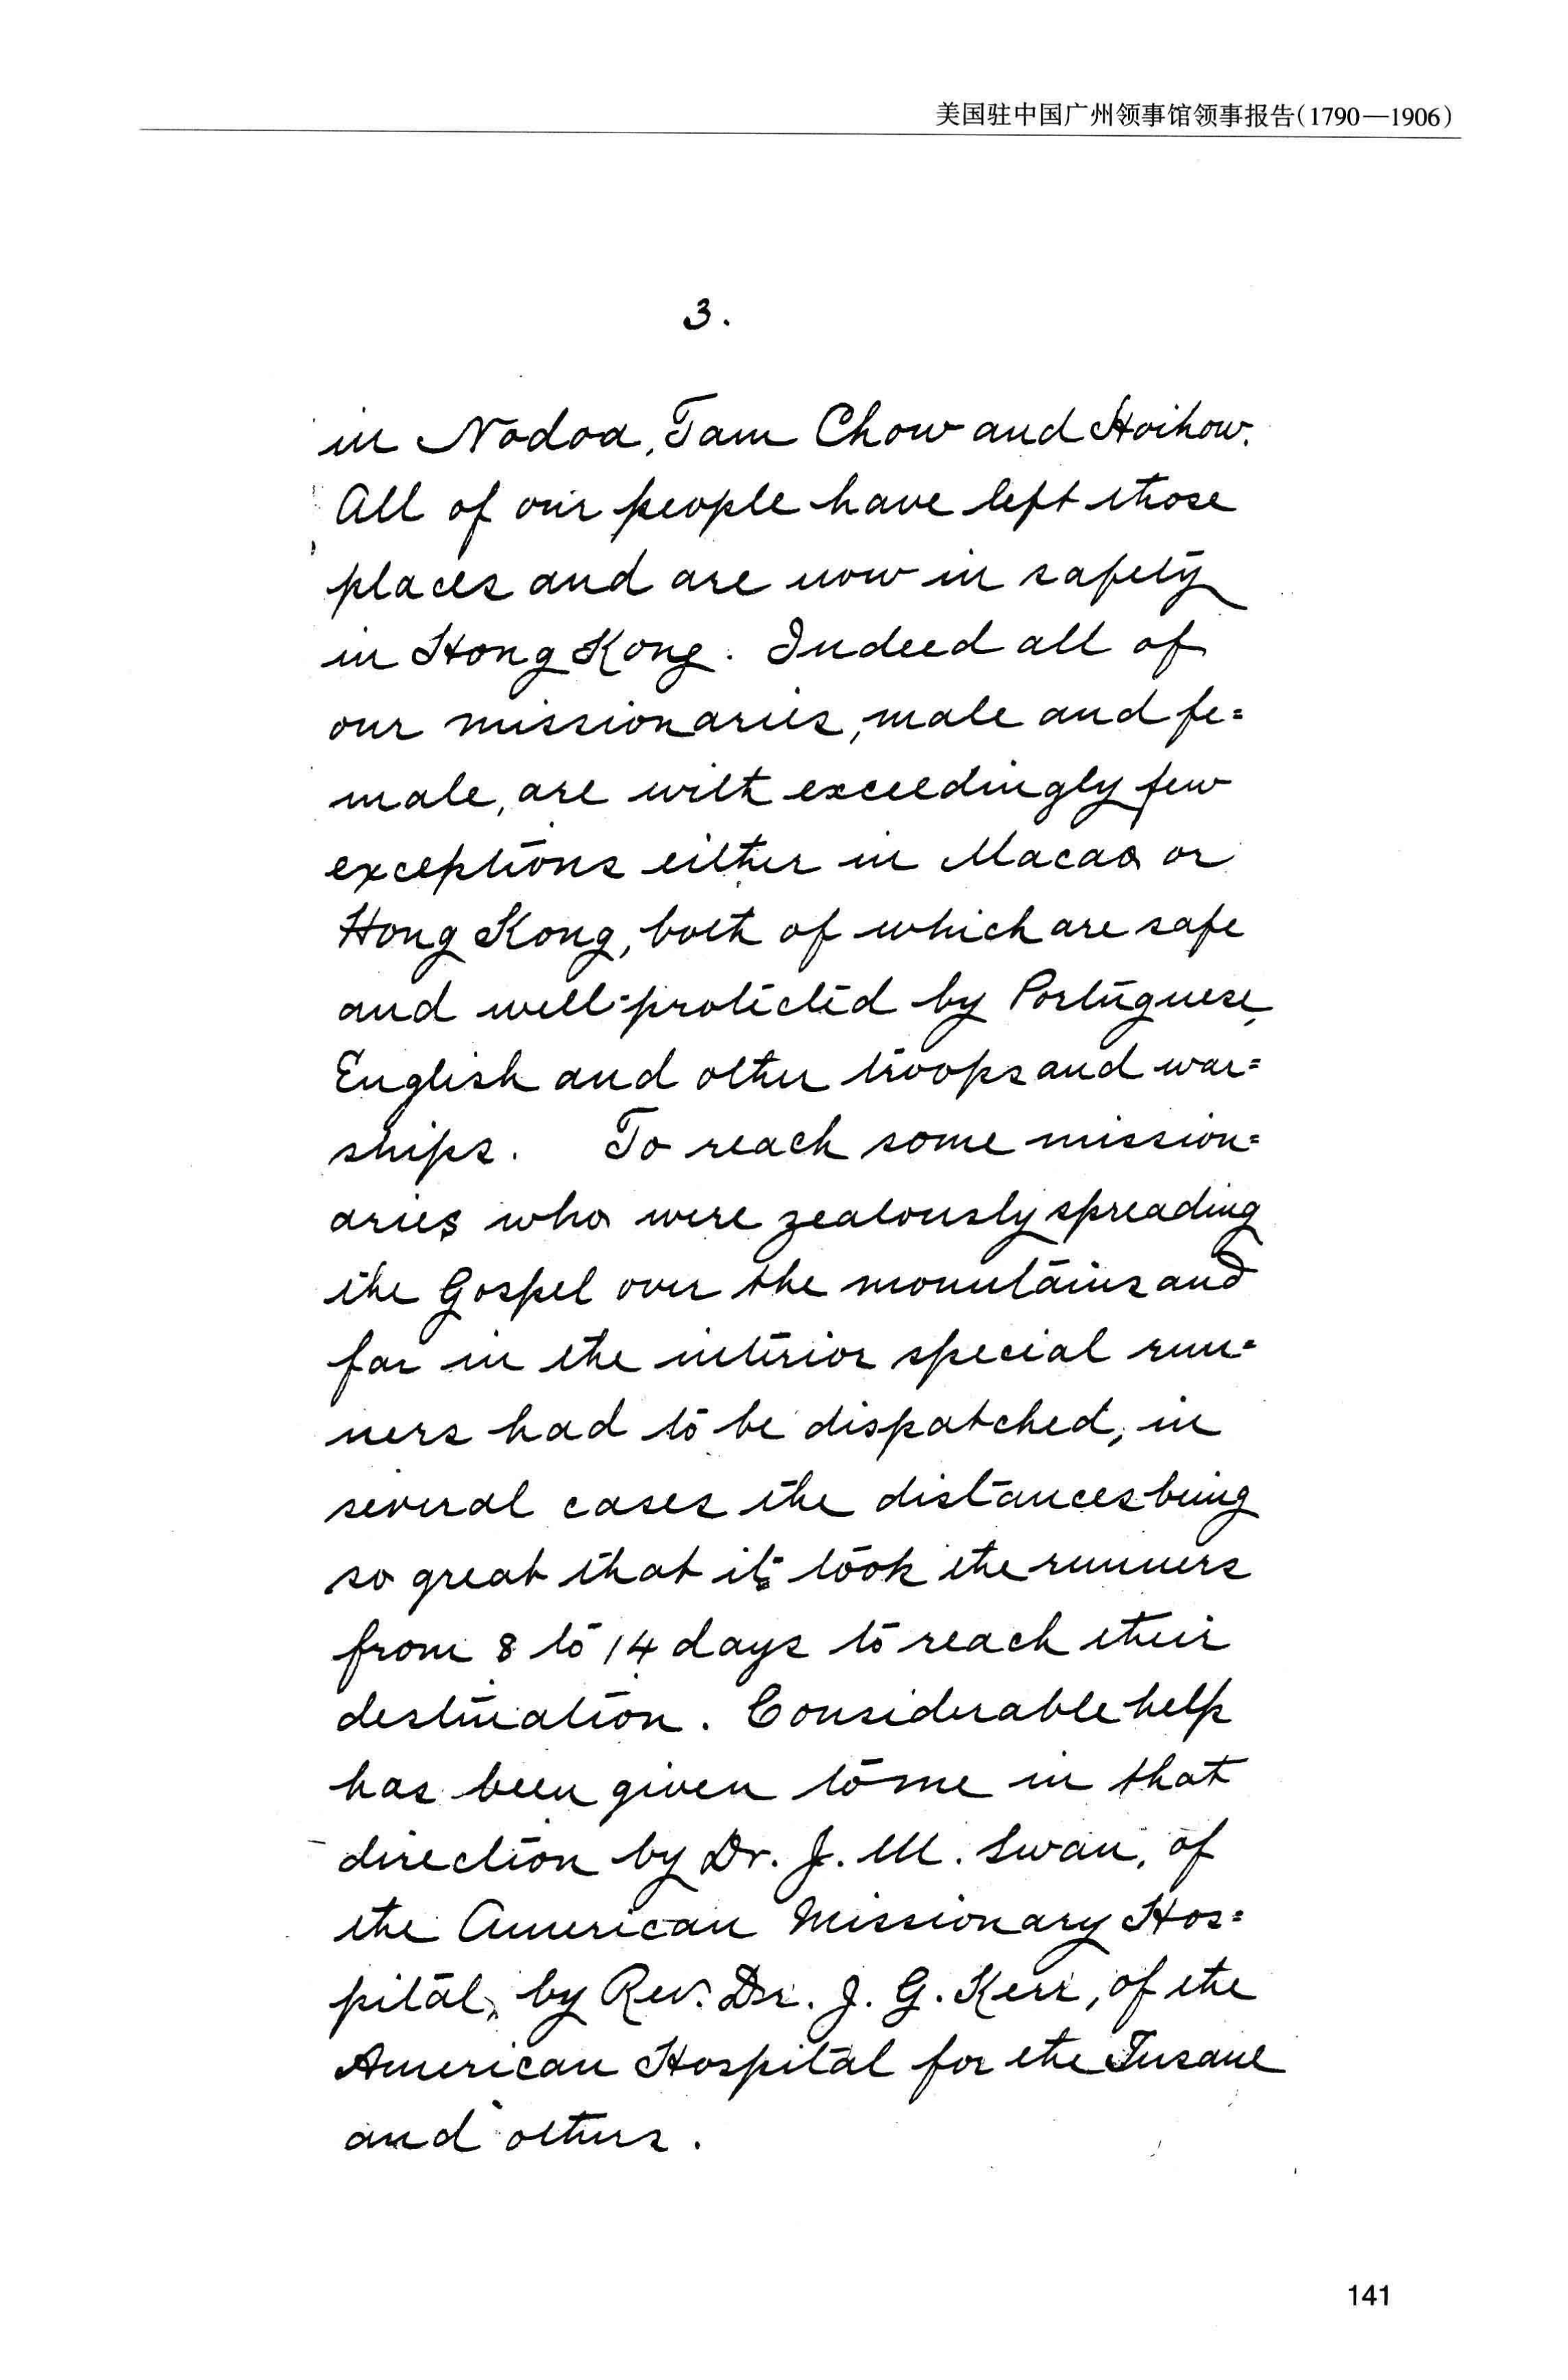 美国驻中国广州领事馆领事报告(1790—1906)
3.
in Nodoa, Tam Chow and Hoihow.
All of our people have left those
places and are now in safety
in Hong Kong. Indeed all of
our missionaries, male and fe=
male, are with exceedingly few
exceptions either in Macao or
Hong Kong, both of which are safe
and well=protected by Portuguese,
English and other troops and war=
ships. To reach some mission=
aries who were zealously spreading
the Gospel over the mountains and
far in the interior special run=
ners had to be dispatched, in
several cases the distances being
so great that it took the runners
from 8 to 14 days to reach their
destination. Considerable help
has been given to me in that
direction by Dr. J. M. Swan, of
the American Missionary Hos=
pital, by Rev. Dr. J. G. Kerr, of the
American Hospital for the Insane
and others.
141